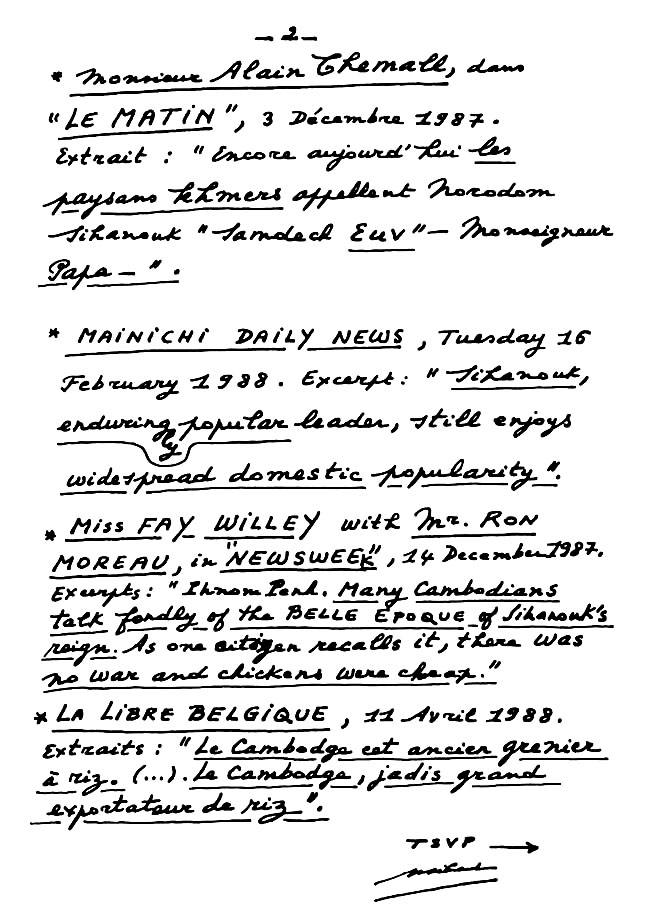 - 2 -
* Monsieur Alain Chemall, dans
"LE MATIN", 3 Décembre 1987.
Extrait : "Encore aujourd'hui les
paysans khmers appellent Norodom
Sihanouk "Samdech Euv" - Monseigneur
Papa - ".
* MAINICHI DAILY NEWS, Tuesday 16
February 1988. Excerpt : "Sihanouk,
enduringly popular leader, still enjoys
widespread domestic popularity".
* Miss FAY WILLEY with Mr. RON
MOREAU, in "NEWSWEEK", 14 December 1987.
Excerpts : "Phnom Penh. Many Cambodians
talk fondly of the BELLE EPOQUE of Sihanouk's
reign. As one citizen recalls it, there was
no war and chickens were cheap."
* LA LIBRE BELGIQUE, 11 Avril 1988.
Extraits : "Le Cambodge cet ancien grenier
à riz. (...). Le Cambodge, jadis grand
exportateur de riz".
TSVP →